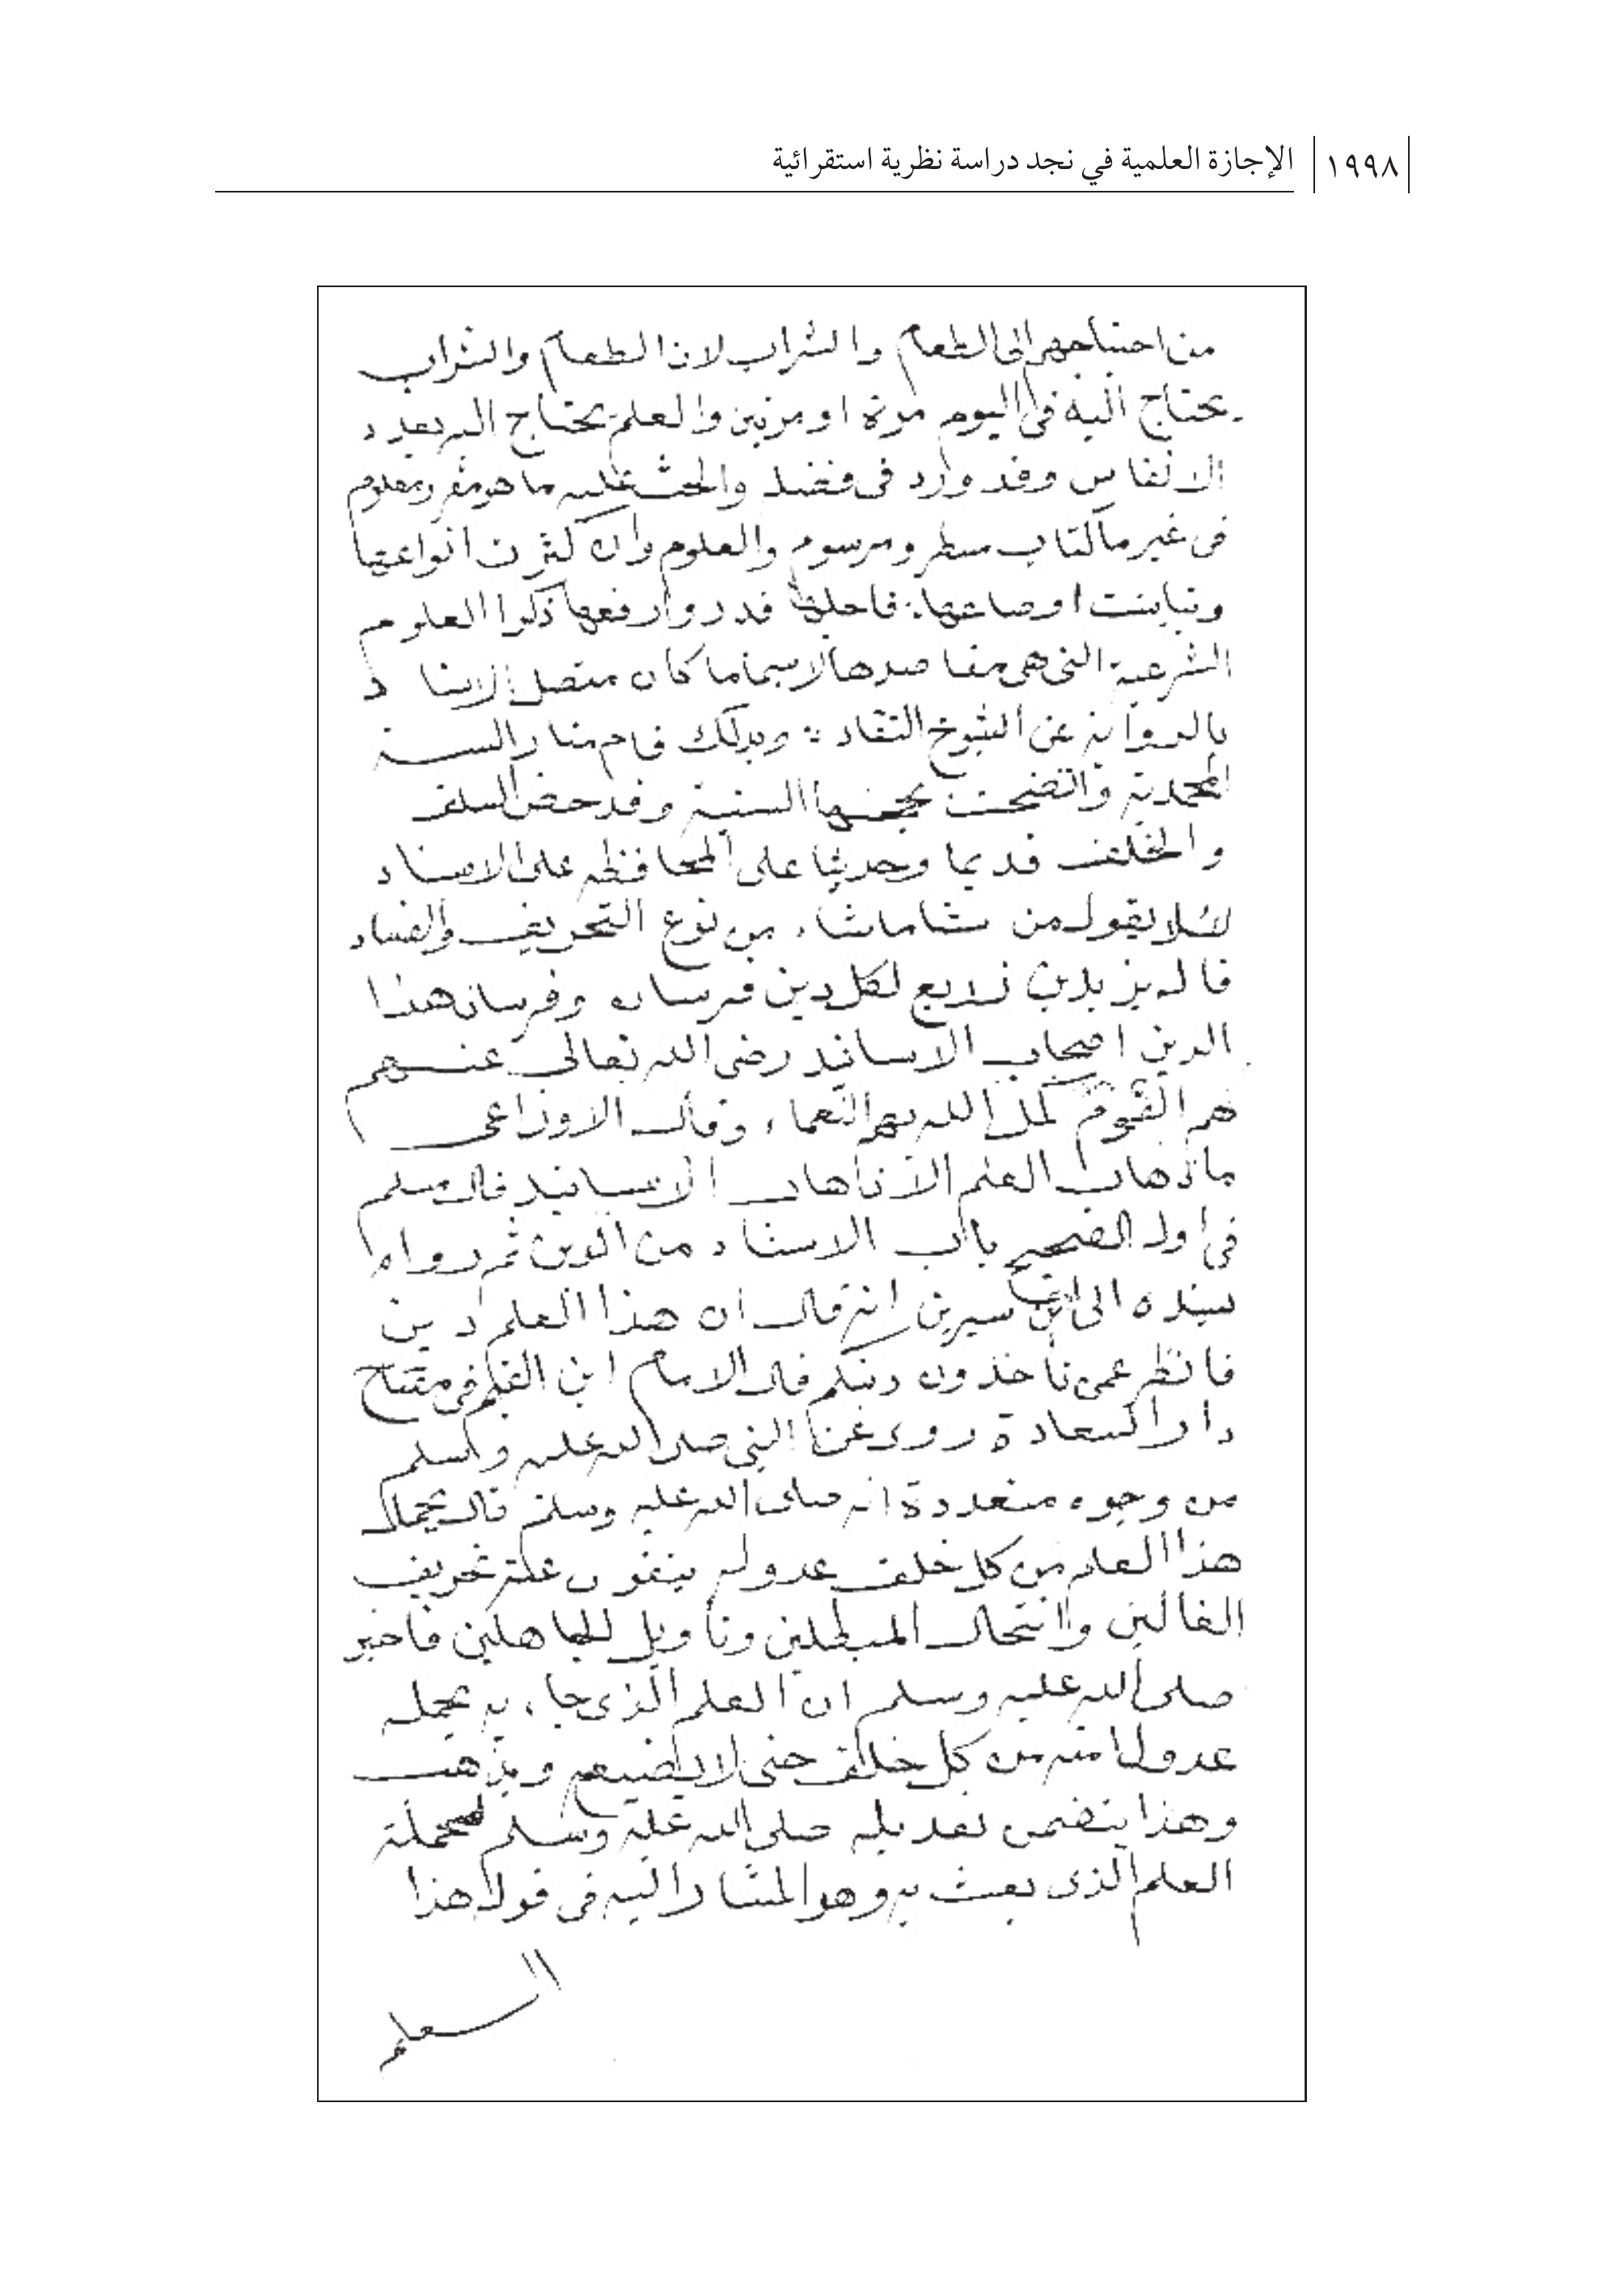 ١٩٩٨ الإجازة العلمية في نجد دراسة نظرية استقرائية
من احتياجهم الى الطعام والشراب لان الطعام والشراب
يحتاج اليه في اليوم مرة او مرتين والعلم يحتاج اليه بعدد
الانفاس وقد ورد في فضله والحث عليه ما هو مقرر ومعلوم
في غير ما كتاب مسطر ومرسوم والعلوم وان كثرت انواعها
وتباينت اوضاعها فاجلها قدرا وارفعها ذكرا العلوم
الشرعية التي هي مقاصدها لاسيما ما كان متصل الاسناد
بالرواية عن الشيوخ النقاد وبذلك قام منار السنة
المحمدية واتضحت محجتها السنية وقد حض السلف
والخلف قديما وحديثا على المحافظه على الاسناد
لئلا يقول من شا ماشاء من نوع التحريف والفساد
قال يزيد بن زريع لكل دين فرسان وفرسان هذا
الدين اصحاب الاسانيد رضي الله تعالى عنهم
هم القوم كمل الله بهم النعماء وقال الاوزاعي
ما ذهاب العلم الا ذهاب الاسانيد قال مسلم
في اول الصحيح باب الاسناد من الدين ثم رواه
بسنده الى ابن سيرين انه قال ان هذا العلم دين
فانظر عمن تأخذون دينكم قال الامام ابن القيم في مفتاح
دار السعادة روي عن النبي صلى الله عليه وسلم
من وجوه متعددة انه صلى الله عليه وسلم قال يحمل
هذا العلم من كل خلف عدوله ينفون عنه تحريف
الغالين وانتحال المبطلين وتأويل الجاهلين فاخبر
صلى الله عليه وسلم ان العلم الذي جاء به يحمله
عدول امته من كل خلف حتى لا يضيع ويذهب
وهذا يتضمن تعديله صلى الله عليه وسلم لحملة
العلم الذي بعث به وهو المشار اليه في قوله هذا
العلم